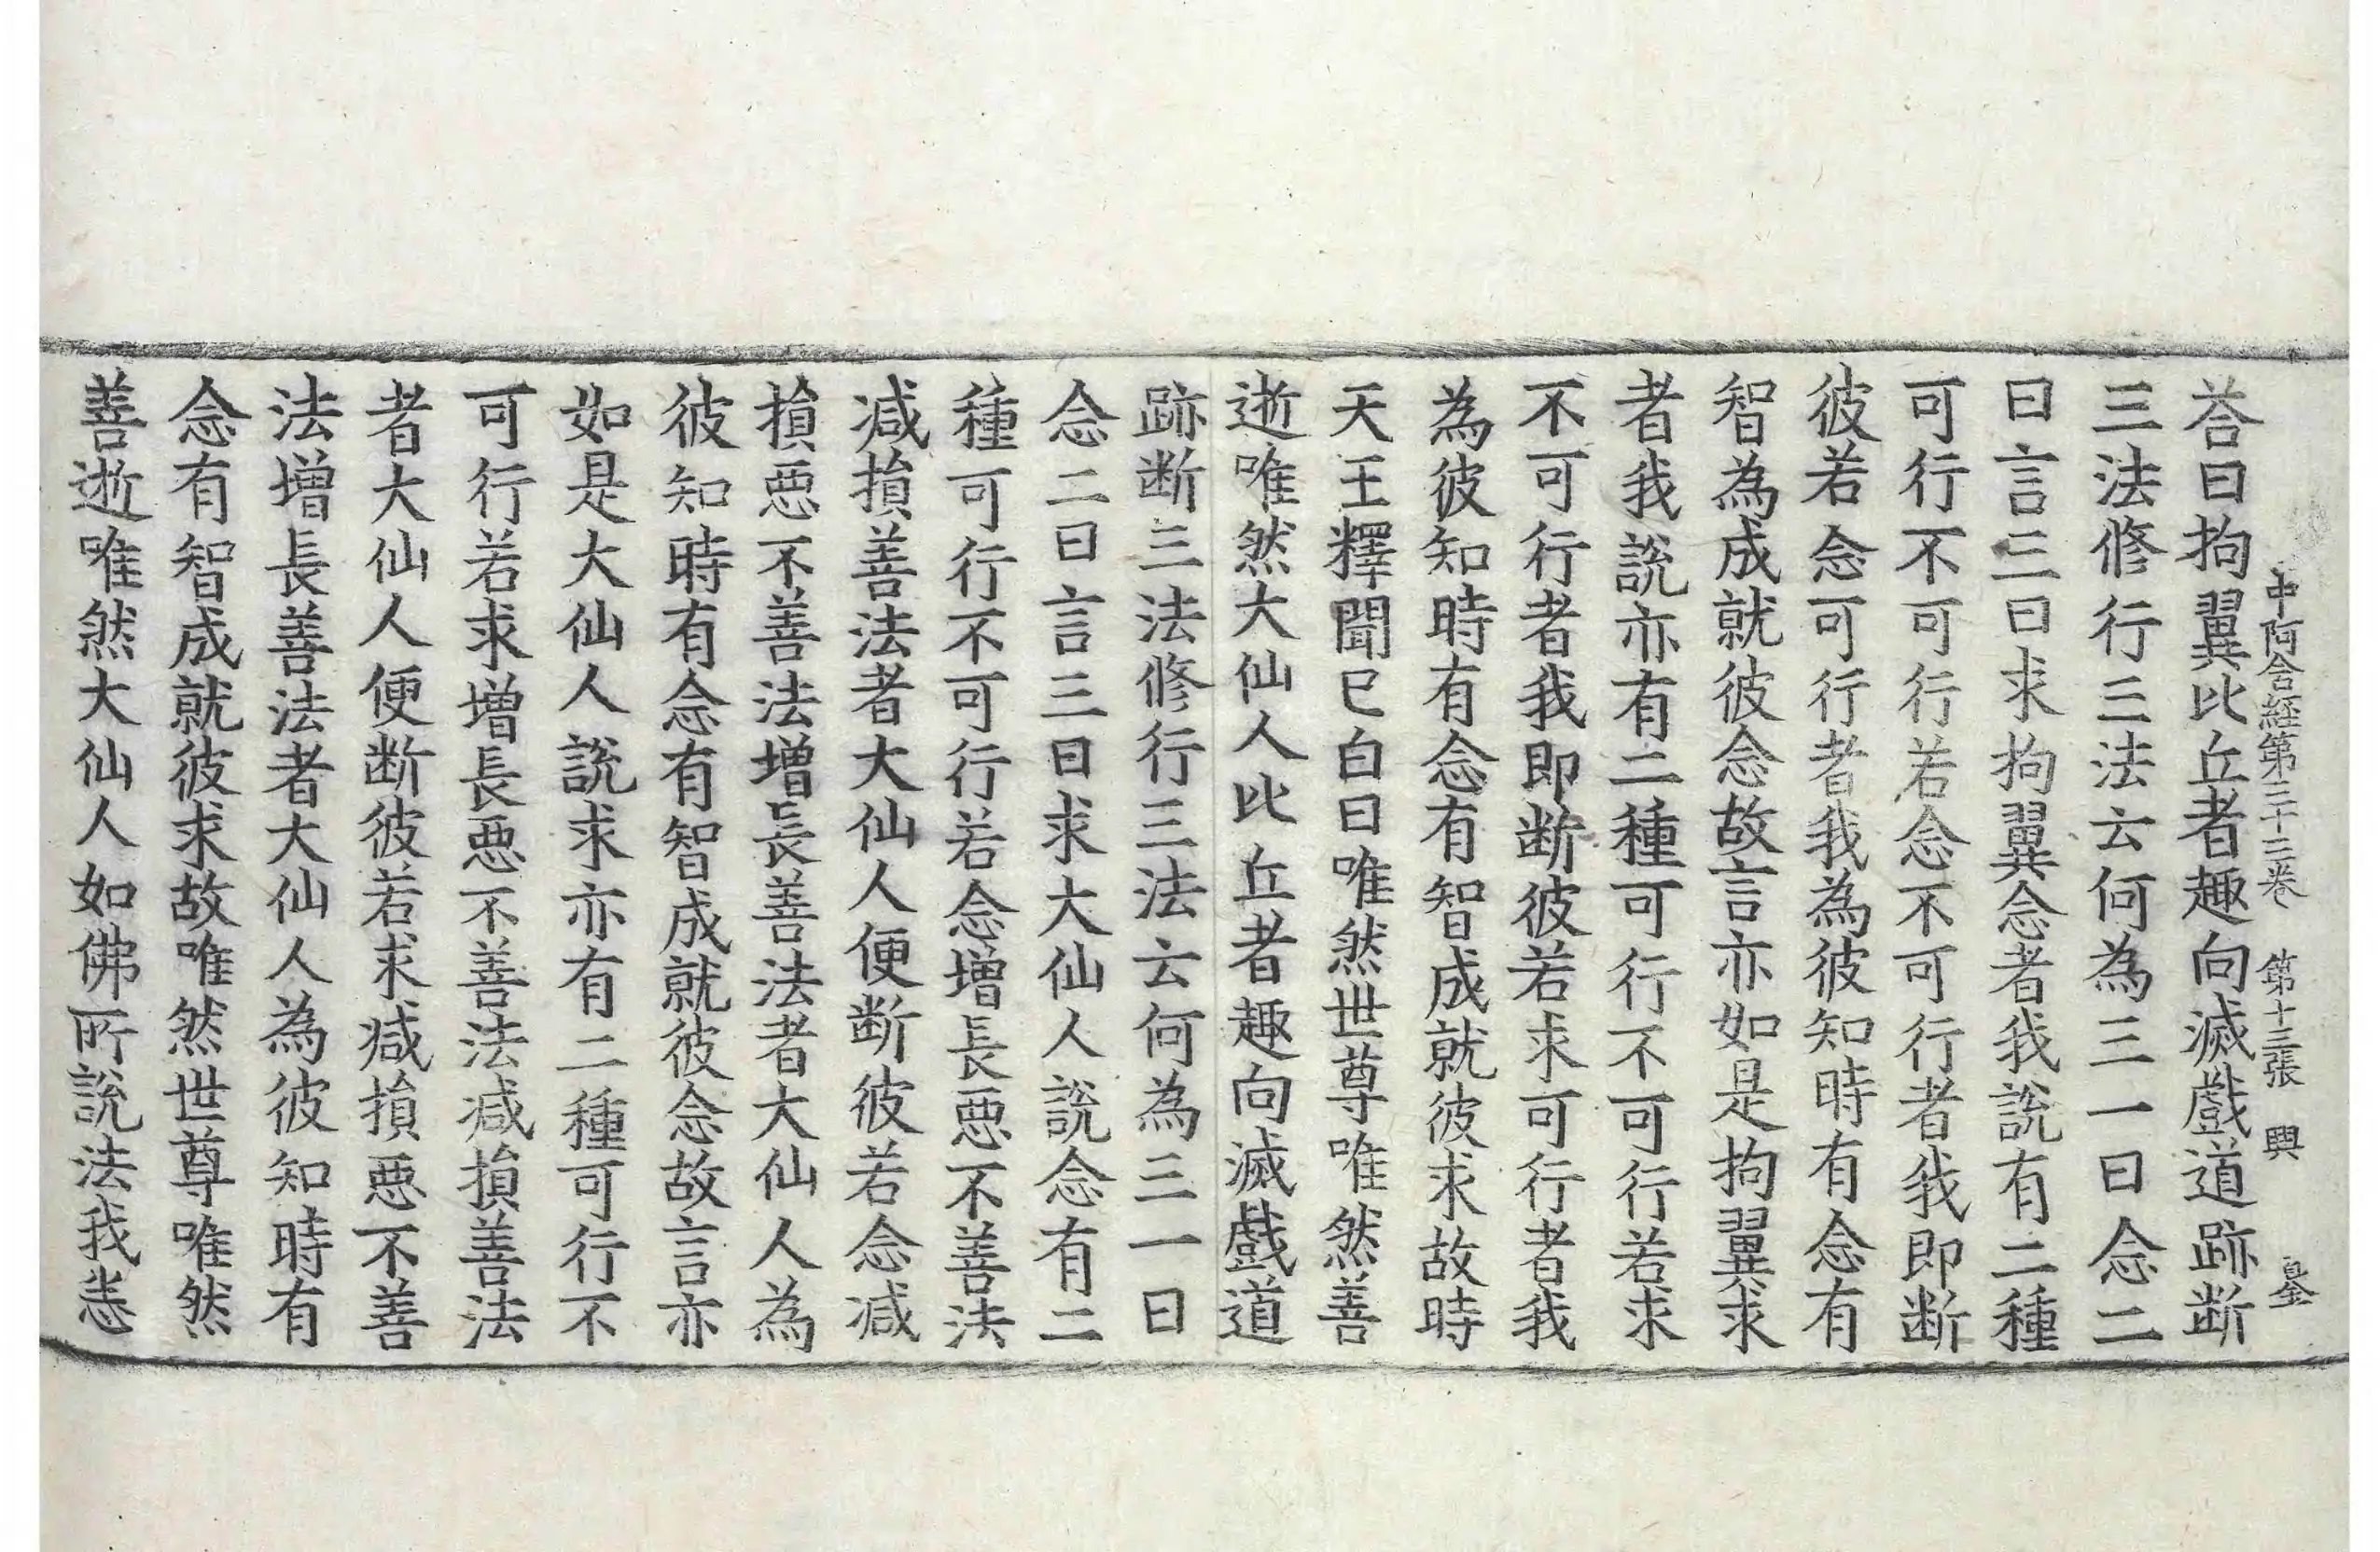 中阿含経第三十三巻 第十三張 興
荅曰拘翼比丘者趣向滅戲道跡断
三法修行三法云何為三一曰念二
曰言三曰求拘翼念者我說有二種
可行不可行若念不可行者我即断
彼若念可行者我為彼知時有念有
智為成就彼念故言亦如是拘翼求
者我說亦有二種可行不可行若求
不可行者我即断彼若求可行者我
為彼知時有念有智成就彼求故時
天王釋聞已白曰唯然世尊唯然善
逝唯然大仙人比丘者趣向滅戲道
跡断三法修行三法云何為三一曰
念二曰言三曰求大仙人說念有二
種可行不可行若念增長悪不善法
减損善法者大仙人便断彼若念减
損悪不善法增長善法者大仙人為
彼知時有念有智成就彼念故言亦
如是大仙人說求亦有二種可行不
可行若求增長悪不善法减損善法
者大仙人便断彼若求减損悪不善
法增長善法者大仙人為彼知時有
念有智成就彼求故唯然世尊唯然
善逝唯然大仙人如佛所說法我悉